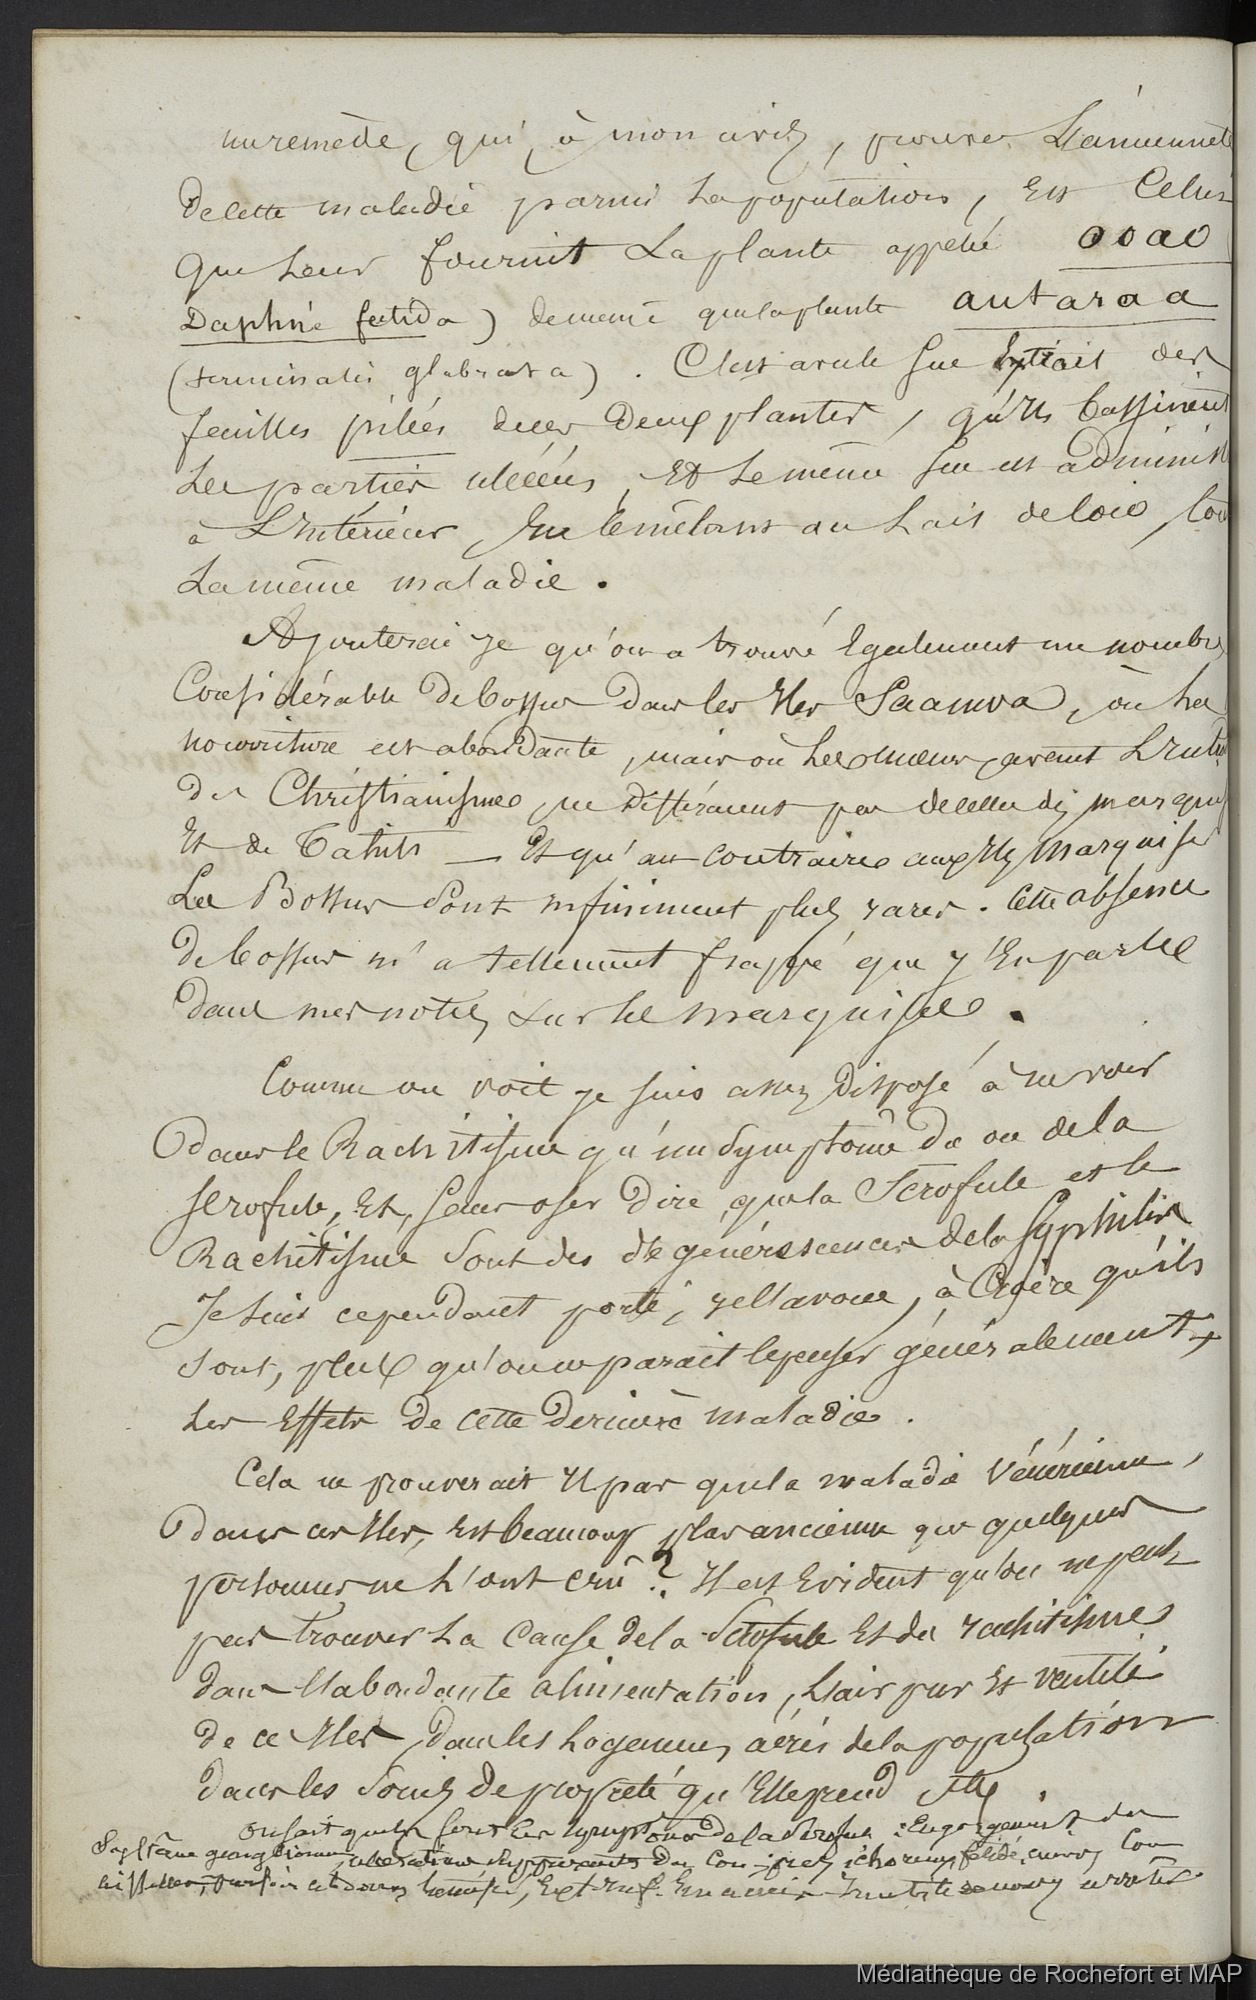 un remède, qui, à mon avis, prouve L'ancienneté
de cette maladie parmi La population, Est Celui
que Leur fournit La plante appelé ooao
Daphné fœtida) de même que la plante autaraa
(terminalis glabrata). C'est avec le suc Extrait des
feuilles pilées de ces Deux plantes, qu'ils bassinent
Les parties ulcérées, Et Le même suc est administ
à L'Intérieur En Le mêlant au Lait de Coco,
La même maladie.
Ajouterai je qu'on a trouvé Egalement un nombre
Considérable De bossus Dans les Iles Saamoa, où La
nourriture est abondante, mais où Les mœurs, avant
du Christianisme, ne Différaient pas de celles des marquises
Et de Tahiti — Et qu'au contraire aux Iles Marquises
Les Bossus Sont infiniment plus rares. Cette absence
De bossus m'a tellement frappé que j'En parle
Dans mes notes sur les marquises.
Comme on voit je suis assez Disposé à ne voir
Dans le Rachitisme qu'un Symptôme De ou de la
scrofule, Et, sans oser Dire que la Scrofule et le
Rachitisme Sont des dégénérescences de la syphilis
Je suis cependant porté, je l'avoue, à Croire qu'ils
sont, plus qu'on ne parait le penser généralement,
Les Effets De cette Dernière maladie.
Cela ne prouverait il pas que la maladie Vénérienne,
Dans ces Iles, Est beaucoup plus ancienne que quelques
personnes ne L'ont crû? Il est Evident qu'on ne peut
pas trouver La Cause de la Scrofule Et du rachitisme
dans L'abondante alimentation, L'air pur Et ventilé
de ce Iles, Dans les Logemens aérés de la population
dans les Soins De propreté qu'Elle prend etc.
On sait quels sont les symptômes de la scrofule: Engorgement du
Système ganglionnaire, ulcérations